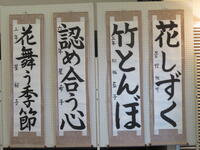 花しずく
竹とんぼ
認め合う心
花舞う季節